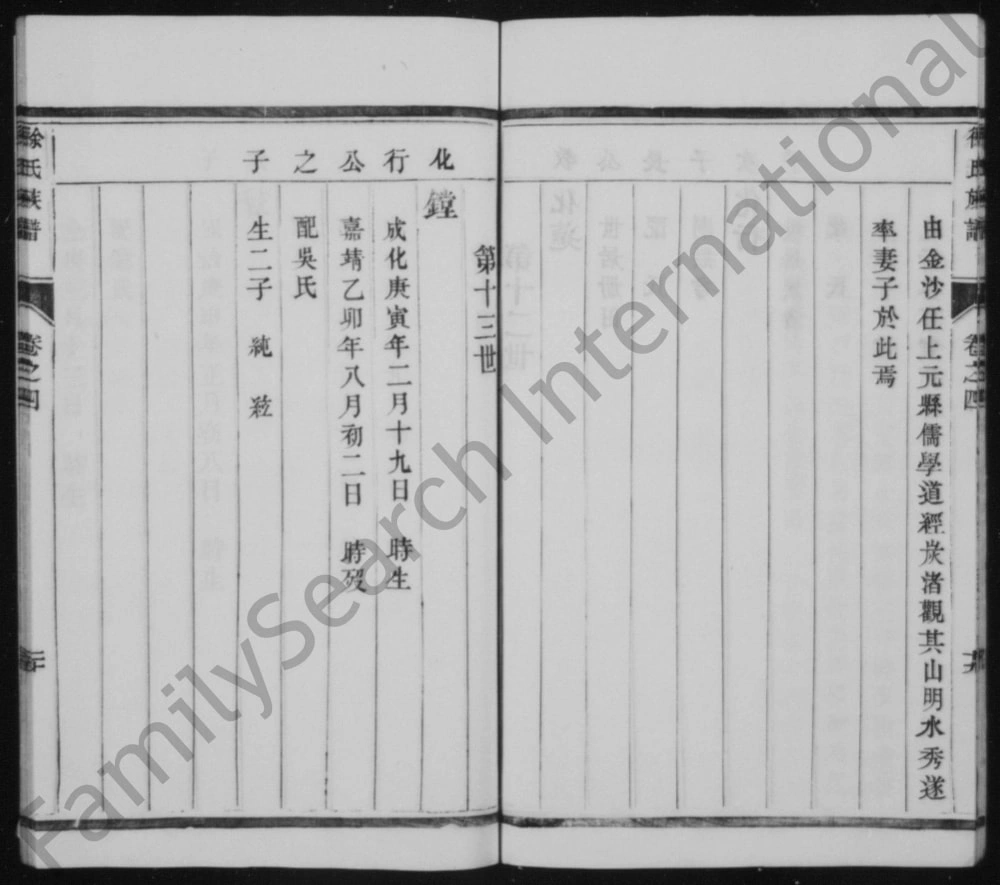 徐氏族譜
卷之四
由金沙任上元縣儒學道經炭渚觀其山明水秀遂
率妻子於此焉
第十三世
化行公之子
鏜
成化庚寅年二月十九日 時生
嘉靖乙卯年八月初二日 時歿
配吳氏
生二子 純
徐氏族譜
卷之四
FamilySearch International